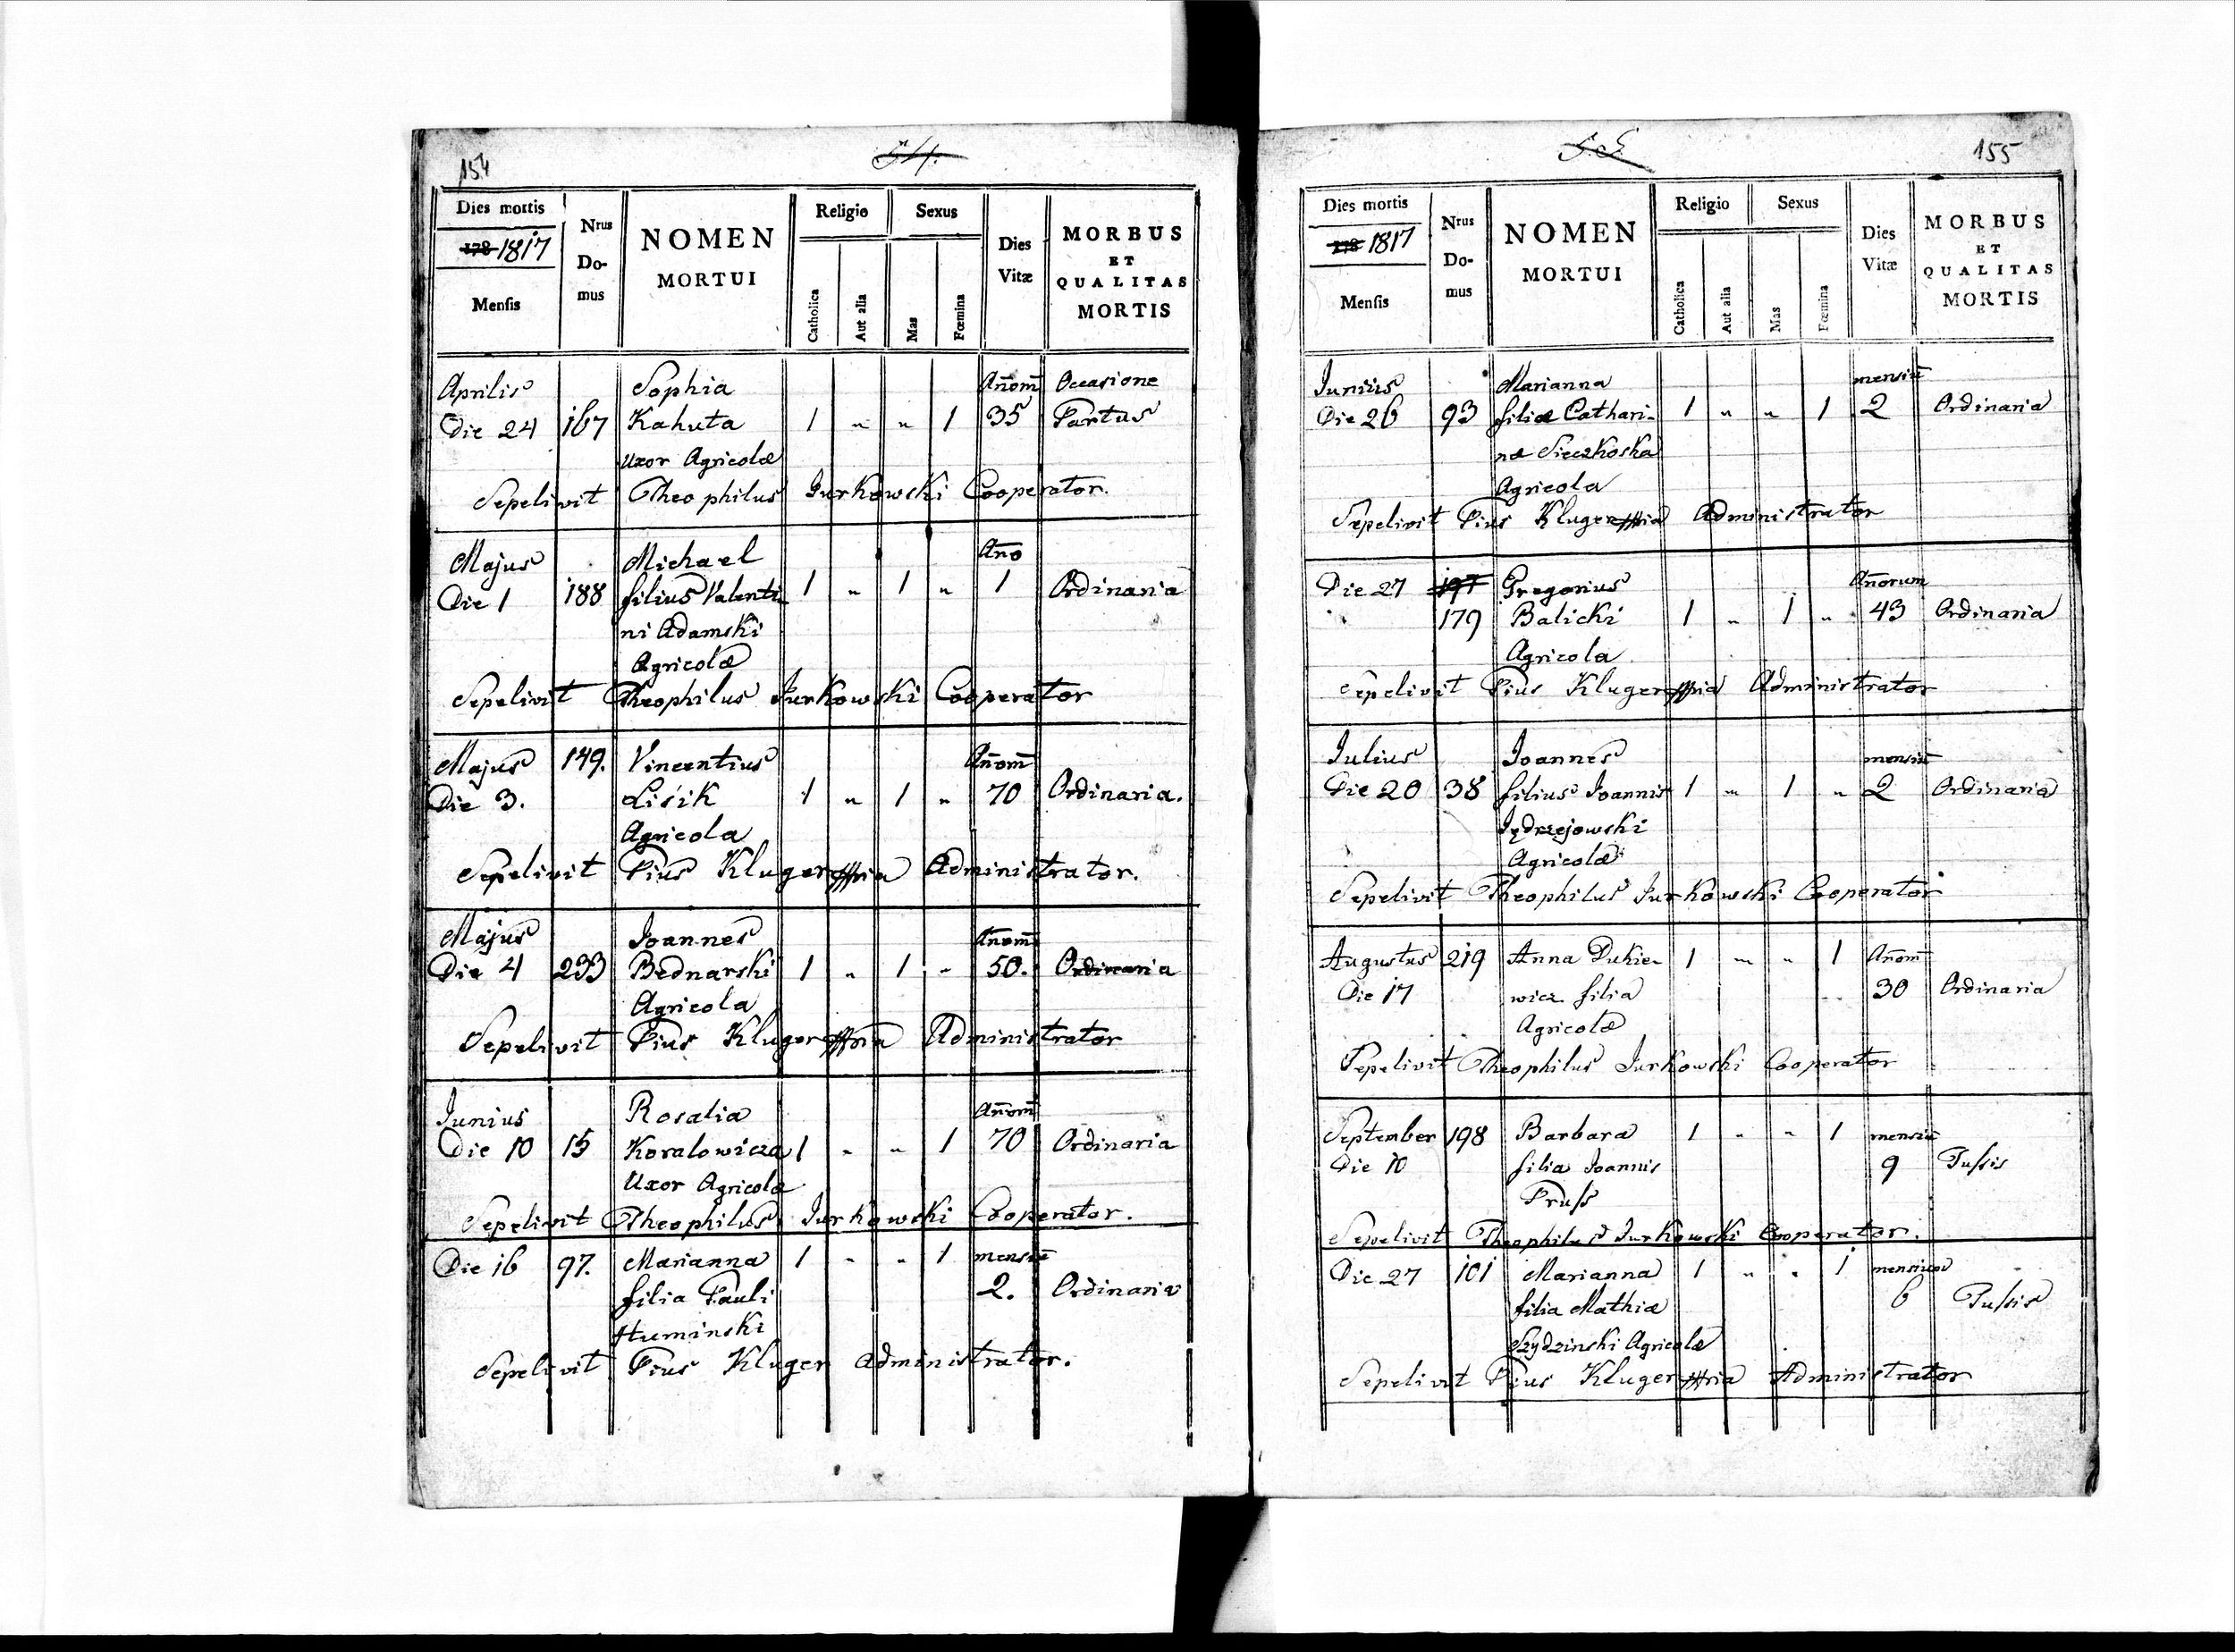 154
54.
Dies mortis
178 1817
Mensis
Nrus Do- mus
NOMEN MORTUI
Religio
Catholica
Aut alia
Sexus
Mas
Fœmina
Dies Vitæ
MORBUS ET QUALITAS MORTIS
Aprilis Sophia Añom̅ Occasione
Die 24 167 Kahuta 1 " " 1 35 Partus
Uxor Agricolæ
Sepelivit Theophilus Jurkowski Cooperator.
Majus Michael Año
Die 1 188 filius Valenti- 1 " 1 " 1 Ordinaria
ni Adamski
Agricolæ
Sepelivit Theophilus Jurkowski Cooperator
Majus 149. Vincentius Añom̅
Die 3. Lisik 1 " 1 " 70 Ordinaria.
Agricola
Sepelivit Pius Kluger Administrator.
Majus Joannes Añom̅
Die 4 233 Bednarski 1 " 1 " 50. Ordinaria
Agricola
Sepelivit Pius Kluger Administrator
Junius Rosalia Añom̅
Die 10 15 Koralowicza 1 " " 1 70 Ordinaria
Uxor Agricolæ
Sepelivit Theophilus Jurkowski Cooperator.
Die 16 97. Marianna 1 " " 1 mensiu̅
filia Pauli 2. Ordinaria
Huminski
Sepelivit Pius Kluger Administrator.
55
155
Dies mortis
178 1817
Mensis
Nrus Do- mus
NOMEN MORTUI
Religio
Catholica
Aut alia
Sexus
Mas
Fœmina
Dies Vitæ
MORBUS ET QUALITAS MORTIS
Junius Marianna mensiu̅
Die 26 93 filia Cathari- 1 " " 1 2 Ordinaria
næ Sieczkoska
Agricola
Sepelivit Pius Kluger Administrator
Die 27 197 Gregorius Añorum
179 Balicki 1 " 1 " 43 Ordinaria
Agricola
Sepelivit Pius Kluger Administrator
Julius Joannes mensiu̅
Die 20 38 filius Joannis 1 " 1 " 2 Ordinaria
Jędrzejowski
Agricolæ
Sepelivit Theophilus Jurkowski Cooperator
Augustus 219 Anna Dukie- 1 " " 1 Añom̅
Die 17 wicz filia 30 Ordinaria
Agricolæ
Sepelivit Theophilus Jurkowski Cooperator
September 198 Barbara 1 " " 1 mensiu̅
Die 10 filia Joannis 9 Tussis
Pruss
Sepelivit Theophilus Jurkowski Cooperator.
Die 27 101 Marianna 1 " " 1 mensium
filia Mathiæ 6 Tussis
Szydzinski Agricolæ
Sepelivit Pius Kluger Administrator